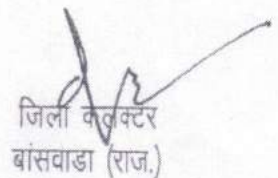 जिला कलक्टर
बांसवाडा (राज.)